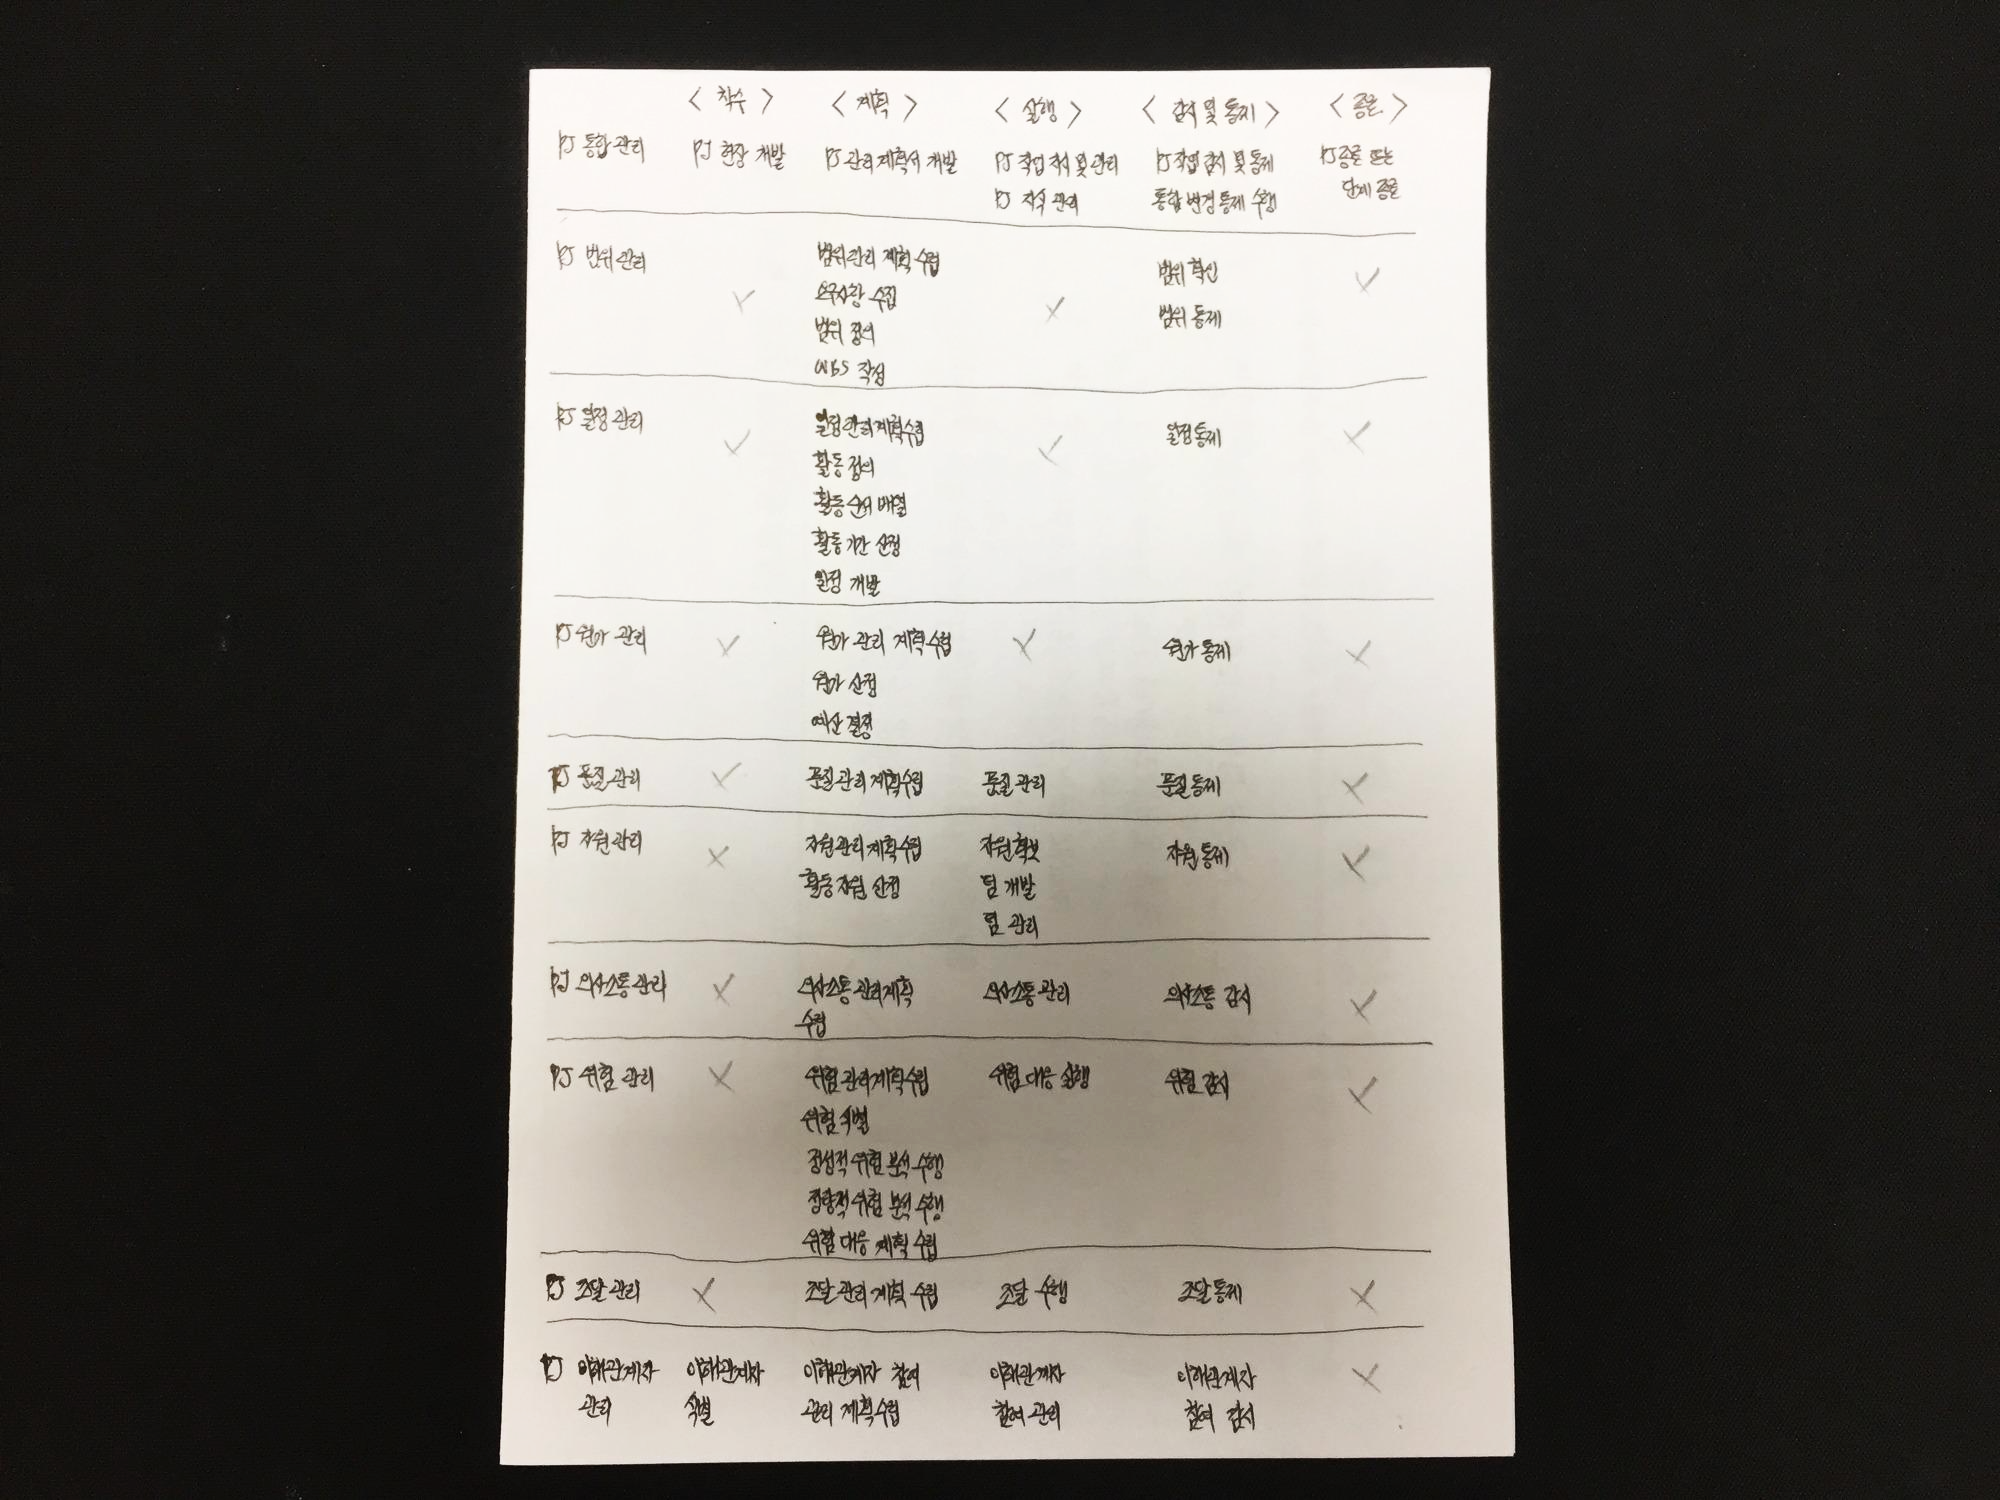 < 착수 > < 계획 > < 실행 > < 감시 및 통제 > < 종료 >
PJ 통합 관리 PJ 헌장 개발 PJ 관리 계획서 개발 PJ 작업 지시 및 관리 PJ 작업 감시 및 통제 PJ 종료 또는
PJ 지식 관리 통합 변경 통제 수행 단계 종료
PJ 범위 관리 범위 관리 계획 수립 범위 확인
요구사항 수집 범위 통제
범위 정의
WBS 작성
PJ 일정 관리 일정 관리 계획 수립 일정 통제
활동 정의
활동 순서 배열
활동 기간 산정
일정 개발
PJ 원가 관리 원가 관리 계획 수립 원가 통제
원가 산정
예산 결정
PJ 품질 관리 품질 관리 계획 수립 품질 관리 품질 통제
PJ 자원 관리 자원 관리 계획 수립 자원 확보 자원 통제
활동 자원 산정 팀 개발
팀 관리
PJ 의사소통 관리 의사소통 관리 계획 의사소통 관리 의사소통 감시
수립
PJ 위험 관리 위험 관리 계획 수립 위험 대응 실행 위험 감시
위험 식별
정성적 위험 분석 수행
정량적 위험 분석 수행
위험 대응 계획 수립
PJ 조달 관리 조달 관리 계획 수립 조달 수행 조달 통제
PJ 이해관계자 이해관계자 이해관계자 참여 이해관계자 이해관계자
관리 식별 관리 계획 수립 참여 관리 참여 감시